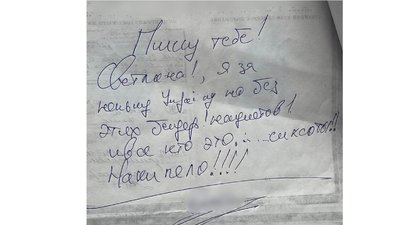 Пишу тебе!
Светлана!, я за
но без
этих бендер нацистов!
и все кто это.... сиксоты!!
Накипело!!!!